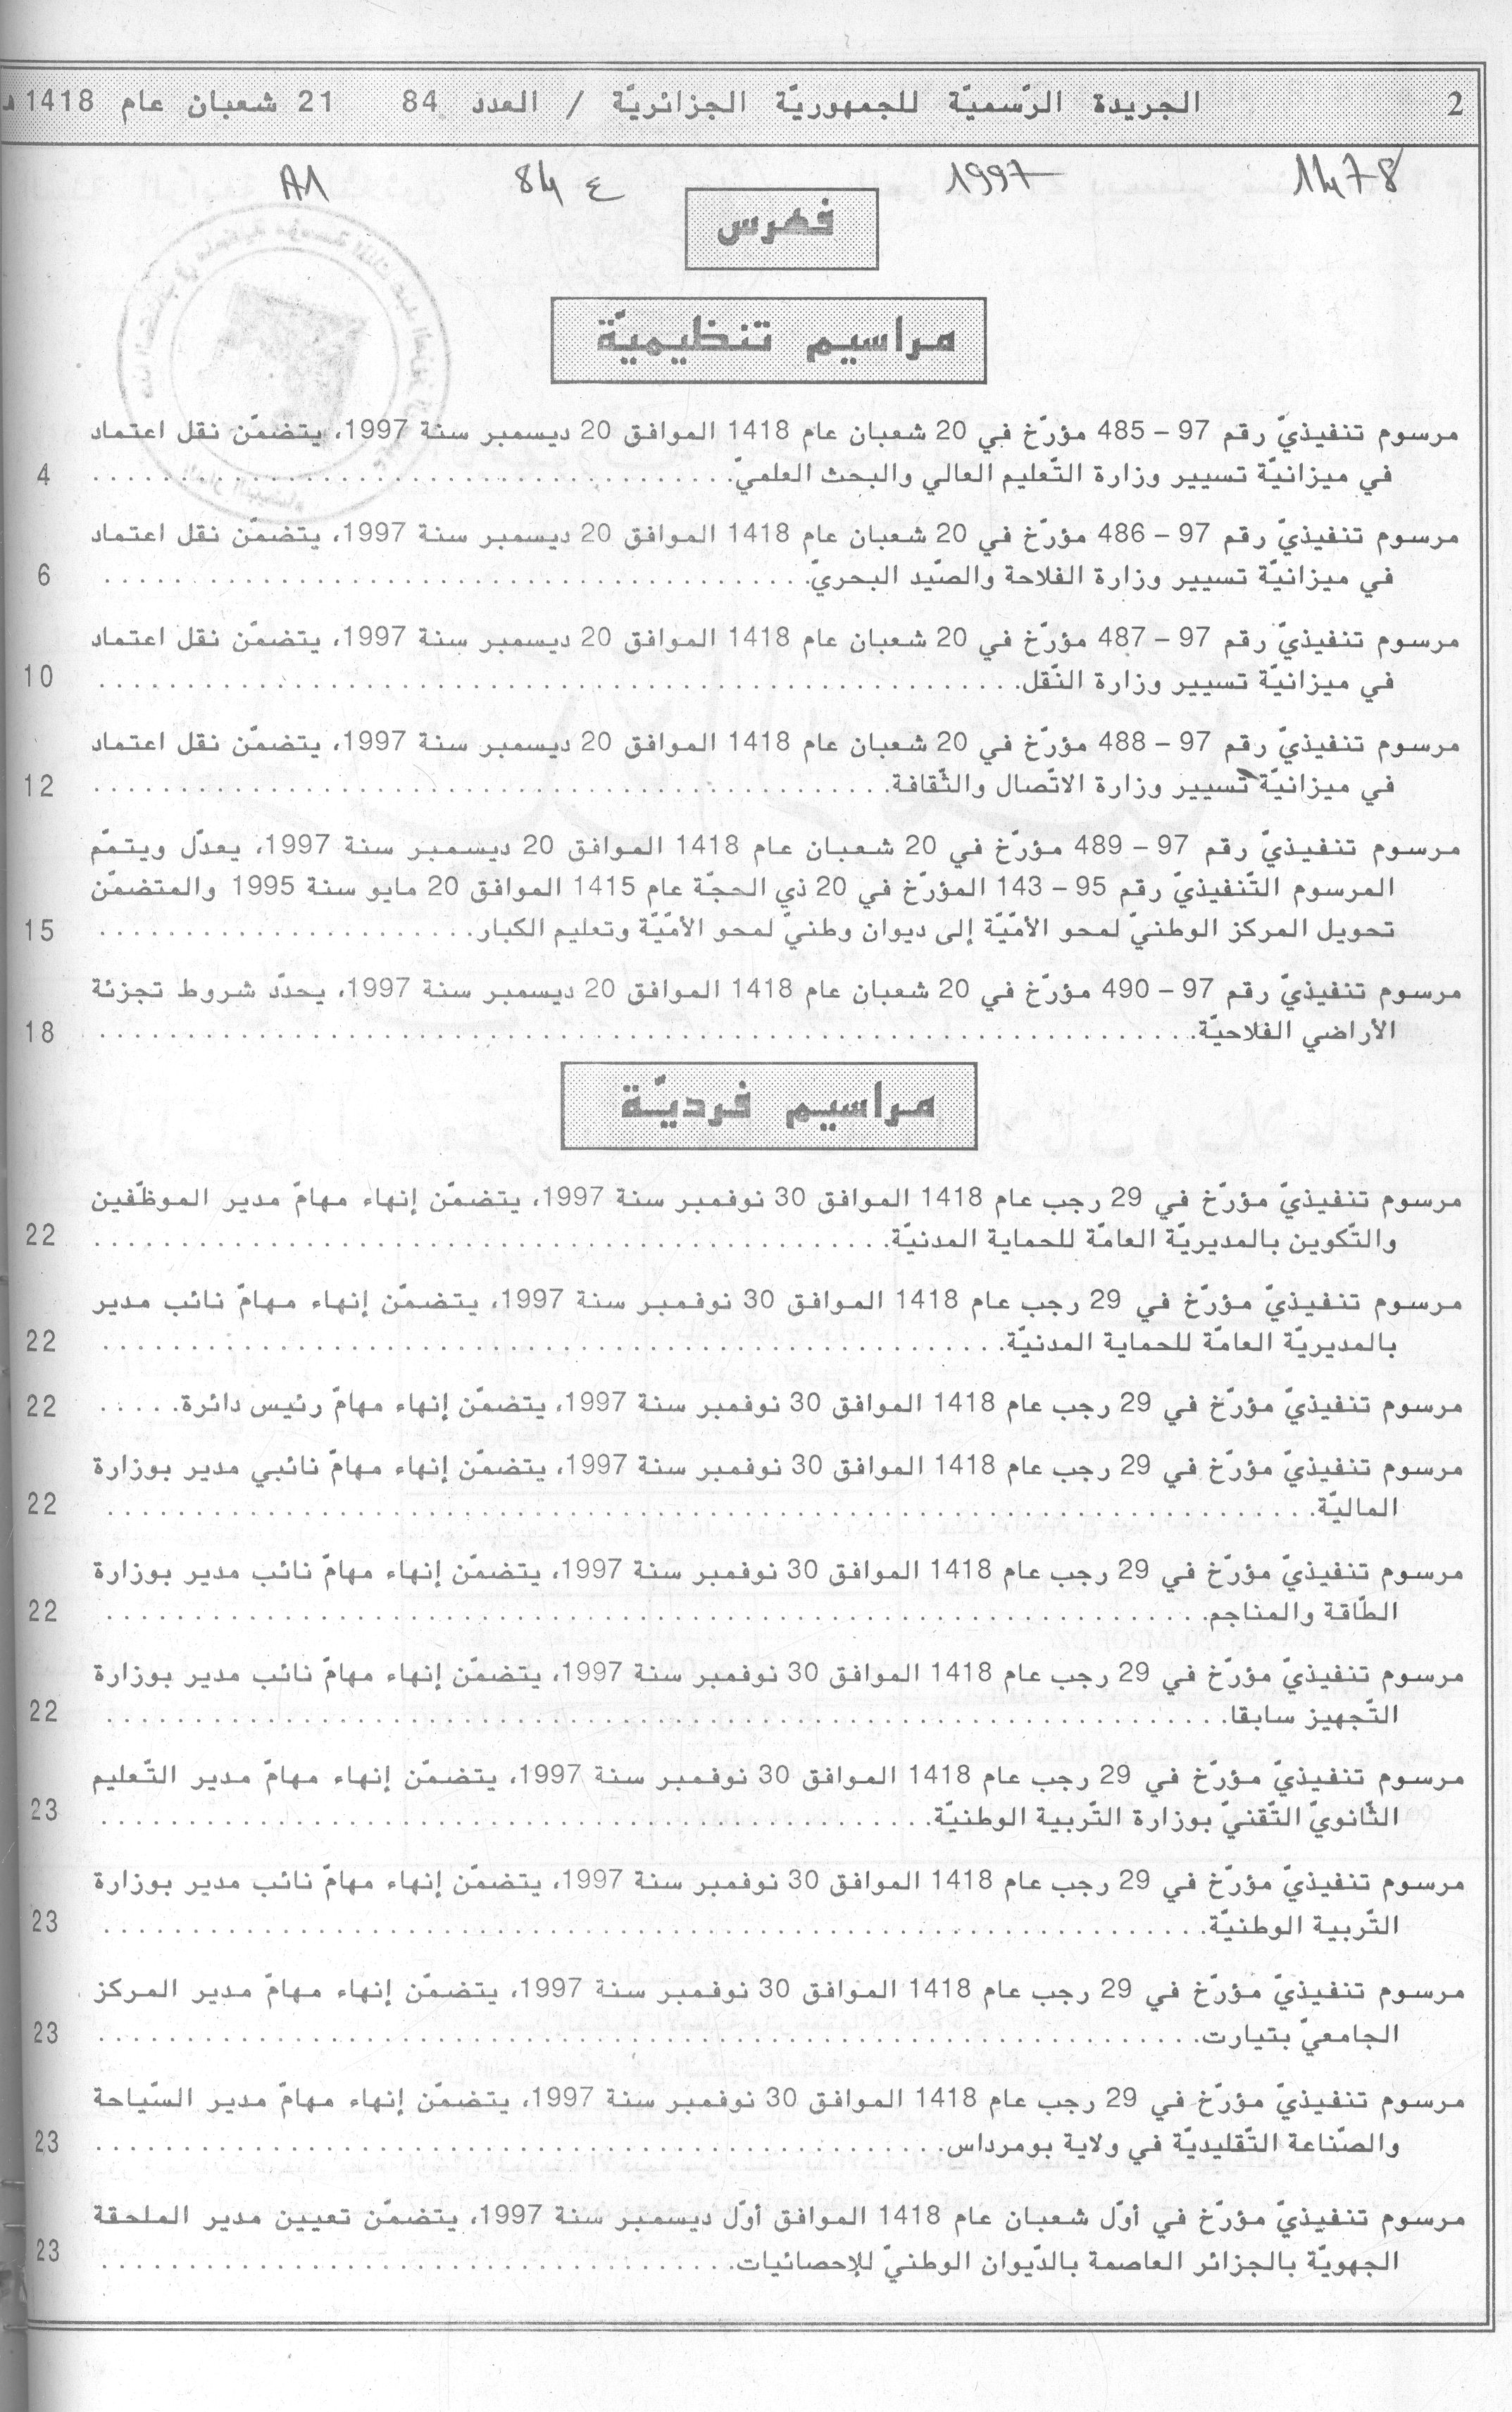 2 الجريدة الرّسميّة للجمهوريّة الجزائريّة / العدد 84 21 شعبان عام 1418 هـ
1478 1997 ع 84 A1
فهرس
مراسيم تنظيميّة
مرسوم تنفيذيّ رقم 97 – 485 مؤرّخ في 20 شعبان عام 1418 الموافق 20 ديسمبر سنة 1997، يتضمّن نقل اعتماد
في ميزانيّة تسيير وزارة التّعليم العالي والبحث العلميّ. 4
مرسوم تنفيذيّ رقم 97 – 486 مؤرّخ في 20 شعبان عام 1418 الموافق 20 ديسمبر سنة 1997، يتضمّن نقل اعتماد
في ميزانيّة تسيير وزارة الفلاحة والصّيد البحريّ. 6
مرسوم تنفيذيّ رقم 97 – 487 مؤرّخ في 20 شعبان عام 1418 الموافق 20 ديسمبر سنة 1997، يتضمّن نقل اعتماد
في ميزانيّة تسيير وزارة النّقل. 10
مرسوم تنفيذيّ رقم 97 – 488 مؤرّخ في 20 شعبان عام 1418 الموافق 20 ديسمبر سنة 1997، يتضمّن نقل اعتماد
في ميزانيّة تسيير وزارة الاتّصال والثّقافة. 12
مرسوم تنفيذيّ رقم 97 – 489 مؤرّخ في 20 شعبان عام 1418 الموافق 20 ديسمبر سنة 1997، يعدّل ويتمّم
المرسوم التّنفيذيّ رقم 95 – 143 المؤرّخ في 20 ذي الحجّة عام 1415 الموافق 20 مايو سنة 1995 والمتضمّن
تحويل المركز الوطنيّ لمحو الأمّيّة إلى ديوان وطنيّ لمحو الأمّيّة وتعليم الكبار. 15
مرسوم تنفيذيّ رقم 97 – 490 مؤرّخ في 20 شعبان عام 1418 الموافق 20 ديسمبر سنة 1997، يحدّد شروط تجزئة
الأراضي الفلاحيّة. 18
مراسيم فرديّة
مرسوم تنفيذيّ مؤرّخ في 29 رجب عام 1418 الموافق 30 نوفمبر سنة 1997، يتضمّن إنهاء مهامّ مدير الموظّفين
والتّكوين بالمديريّة العامّة للحماية المدنيّة. 22
مرسوم تنفيذيّ مؤرّخ في 29 رجب عام 1418 الموافق 30 نوفمبر سنة 1997، يتضمّن إنهاء مهامّ نائب مدير
بالمديريّة العامّة للحماية المدنيّة. 22
مرسوم تنفيذيّ مؤرّخ في 29 رجب عام 1418 الموافق 30 نوفمبر سنة 1997، يتضمّن إنهاء مهامّ رئيس دائرة. 22
مرسوم تنفيذيّ مؤرّخ في 29 رجب عام 1418 الموافق 30 نوفمبر سنة 1997، يتضمّن إنهاء مهامّ نائبي مدير بوزارة
الماليّة. 22
مرسوم تنفيذيّ مؤرّخ في 29 رجب عام 1418 الموافق 30 نوفمبر سنة 1997، يتضمّن إنهاء مهامّ نائب مدير بوزارة
الطّاقة والمناجم. 22
مرسوم تنفيذيّ مؤرّخ في 29 رجب عام 1418 الموافق 30 نوفمبر سنة 1997، يتضمّن إنهاء مهامّ نائب مدير بوزارة
التّجهيز سابقا. 22
مرسوم تنفيذيّ مؤرّخ في 29 رجب عام 1418 الموافق 30 نوفمبر سنة 1997، يتضمّن إنهاء مهامّ مدير التّعليم
الثّانويّ التّقنيّ بوزارة التّربية الوطنيّة. 23
مرسوم تنفيذيّ مؤرّخ في 29 رجب عام 1418 الموافق 30 نوفمبر سنة 1997، يتضمّن إنهاء مهامّ نائب مدير بوزارة
التّربية الوطنيّة. 23
مرسوم تنفيذيّ مؤرّخ في 29 رجب عام 1418 الموافق 30 نوفمبر سنة 1997، يتضمّن إنهاء مهامّ مدير المركز
الجامعيّ بتيارت. 23
مرسوم تنفيذيّ مؤرّخ في 29 رجب عام 1418 الموافق 30 نوفمبر سنة 1997، يتضمّن إنهاء مهامّ مدير السّياحة
والصّناعة التّقليديّة في ولاية بومرداس. 23
مرسوم تنفيذيّ مؤرّخ في أوّل شعبان عام 1418 الموافق أوّل ديسمبر سنة 1997، يتضمّن تعيين مدير الملحقة
الجهويّة بالجزائر العاصمة بالدّيوان الوطنيّ للإحصائيات. 23